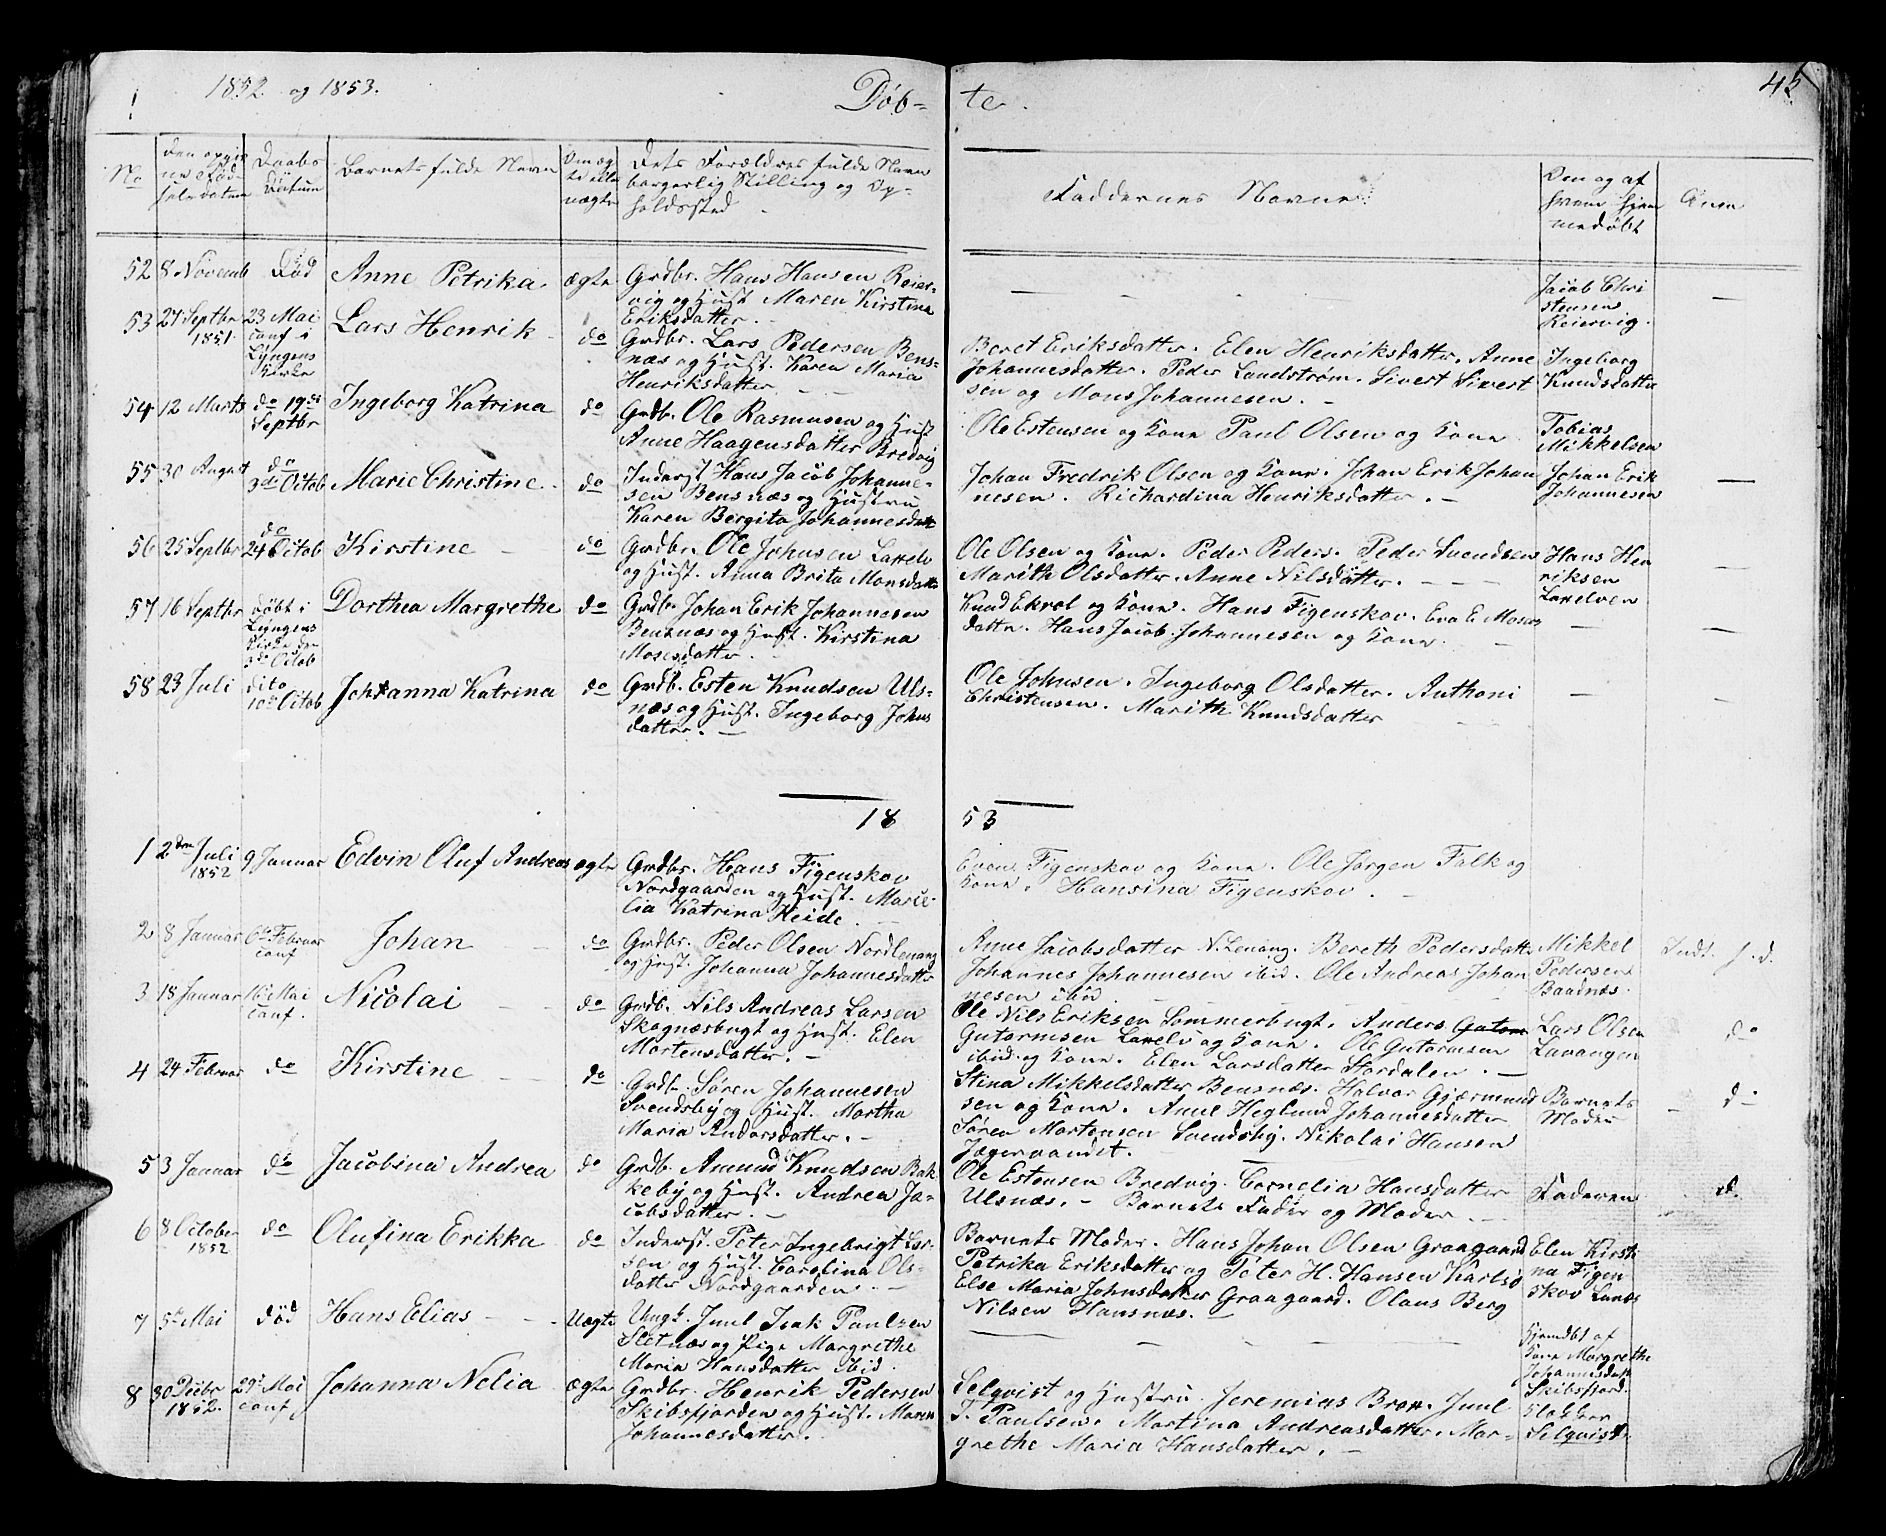 1852 og 1853.
Döb=
te.
45
No
Den opgiv
ne Föd
selsdatum
Daabs
Datum
Barnets fulde Navn
Om æg
te eller
uægte
Dets Forældres fulde Navn
borgerlig Stilling og Op=
holdssted
Faddernes Navne
Om og af
hvem hjem
medöbt
Anm
52 8 Novemb Död Anne Petrika. ægte Grdbr. Hans Hansen Reier-
vig og Hust. Maren Kirstina
Eriksdatter.
Jacob Chri
stensen
Reiervig.
53 27 Septbr 1851. 23 Mai conf i Lyngens Kirke Lars Henrik do Grdbr. Lars Pedersen Bens-
næs og Hust. Karen Maria
Henriksdatter
Beret Eriksdatter. Elen Henriksdatter. Anne
Johannesdatter. Peder Lundström. Sivert Sivert
sen og Mons Johannesen.
Ingeborg
Knudsdatter
54 12 Marts do 19de Septbr Ingeborg Katrina do Grdb. Ole Rasmusen og Hust
Anne Haagensdatter Bredvig
Ole Estensen og Kone Paul Olsen og Kone
Tobias
Mikkelsen
55 30 August do 3de Octob Marie Christine do Inderst Hans Jacob Johanne-
sen Bensnæs og Hustru
Karen Bergita Johannesdatt
Johan Fredrik Olsen og Kone. Johan Erik Johan
nesen. Richardina Henriksdatter.
Johan Erik
Johannesen
56 25 Septbr do 24 Octob Kirstine do Grdbr. Ole Johnsen Lakelv
og Hust. Anna Brita Monsdatter
Ole Olsen og Kone. Peder Peders. Peder Svendsen
Marith Olsdatter. Anne Nilsdatter.
Hans Hen
riksen
Lakelven
57 16 Septbr döbt i Lyngens Kirke den 3de Octob Dorthea Margrethe do Grdbr. Johan Erik Johannesen
Bensnæs og Hust. Kirstina
Mosesdatter.
Knud Ekrol og Kone. Hans Figenskov. Eva E. Moses
datter. Hans Jacob Johannesen og Kone.
58 23 Juli dito 10de Octob Johanna Katrina do Grdb. Esten Knudsen Uls-
næs og Hust. Ingeborg Johns
datter.
Ole Johnsen. Ingeborg Olsdatter. Anthoni
Christensen. Marith Knudsdatter
18 53
1 2den Juli 1852 9 Januar Edvin Oluf Andreas ægte Grdbr. Hans Figenskov
Nordgaarden og Hust. Marie-
lia Katrina Heide.
Even Figenskov og Kone. Ole Jörgen Falk og
Kone. Hansina Figenskov.
2 8 Januar 6te Februar conf Johan do Grdbr. Peder Olsen Nordlenang
og Hust. Johanna Johannesdatter
Anne Jacobsdatter N. Lenang. Bereth Pedersdatter
Johannes Johannesen ibid. Ole Andreas Johan
nesen ibid
Mikkel
Pedersen
Baadnæs.
Indt. f. d.
3 18 Januar 16 Mai conf. Nicolai do Grdb. Nils Andreas Larsen
Skognæsbugt og Hust. Elen
Mortensdatter.
Ole Nils Eriksen Sommerbugt. Anders Gutorm
Gutormsen Lakelv og Kone. Ole Gutormsen
ibid. og Kone. Elen Larsdatter Stordalen.
Lars Olsen
Lavangen
do
4 24 Februar do Kirstine do Grdb. Sören Johannesen
Svendsby og Hust. Martha
Maria Andersdatter.
Stina Mikkelsdatter Bensnæs. Halvor Gjærmund
sen og Kone. Anne Heglund Johannesdatter
Sören Mortensen Svendsby. Nikolai Hansen
Jægervandet.
Barnets
Moder
do
5 3 Januar do Jacobina Andrea do Grdb. Amund Knudsen Bak
keby og Hust. Andrea Ja-
cobsdatter.
Ole Estensen Bredvig. Cornelia Hansdatter
Ulsnæs. Barnets Fader og Moder.
Faderen
d.
6 8 October 1852 do Olufina Erikka do Inderst. Peter Ingebrigt Lar-
sen og Hust. Carolina Ols-
datter Nordgaarden.
Barnets Moder. Hans Johan Olsen Graagaard
Petrika Eriksdatter og Peter H. Hansen Karlsö
Else Maria Johnsdatter Graagaard. Olaus Berg
Nilsen Hansnæs.
Elen Kirsti
na Figen
skov
7 5te Mai död Hans Elias Uægte Ungk. Juul Isak Paulsen
Sletnæs og Pige Margrethe
Maria Hansdatter ibid.
Hjemdbt af
Kone Margrethe
Johannesdatt
Skibsfjord.
8 30 Decbr 1852. 29de Mai conf Johanna Nelia ægte Grdbr. Henrik Pedersen
Skibsfjorden og Hust. Maren
Johannesdatter.
Selqvist og Hustru Jeremias Brox. Juul
I. Paulsen. Martina Andreasdatter. Mar-
grethe Maria Hansdatter.
Klokker
Selqvist